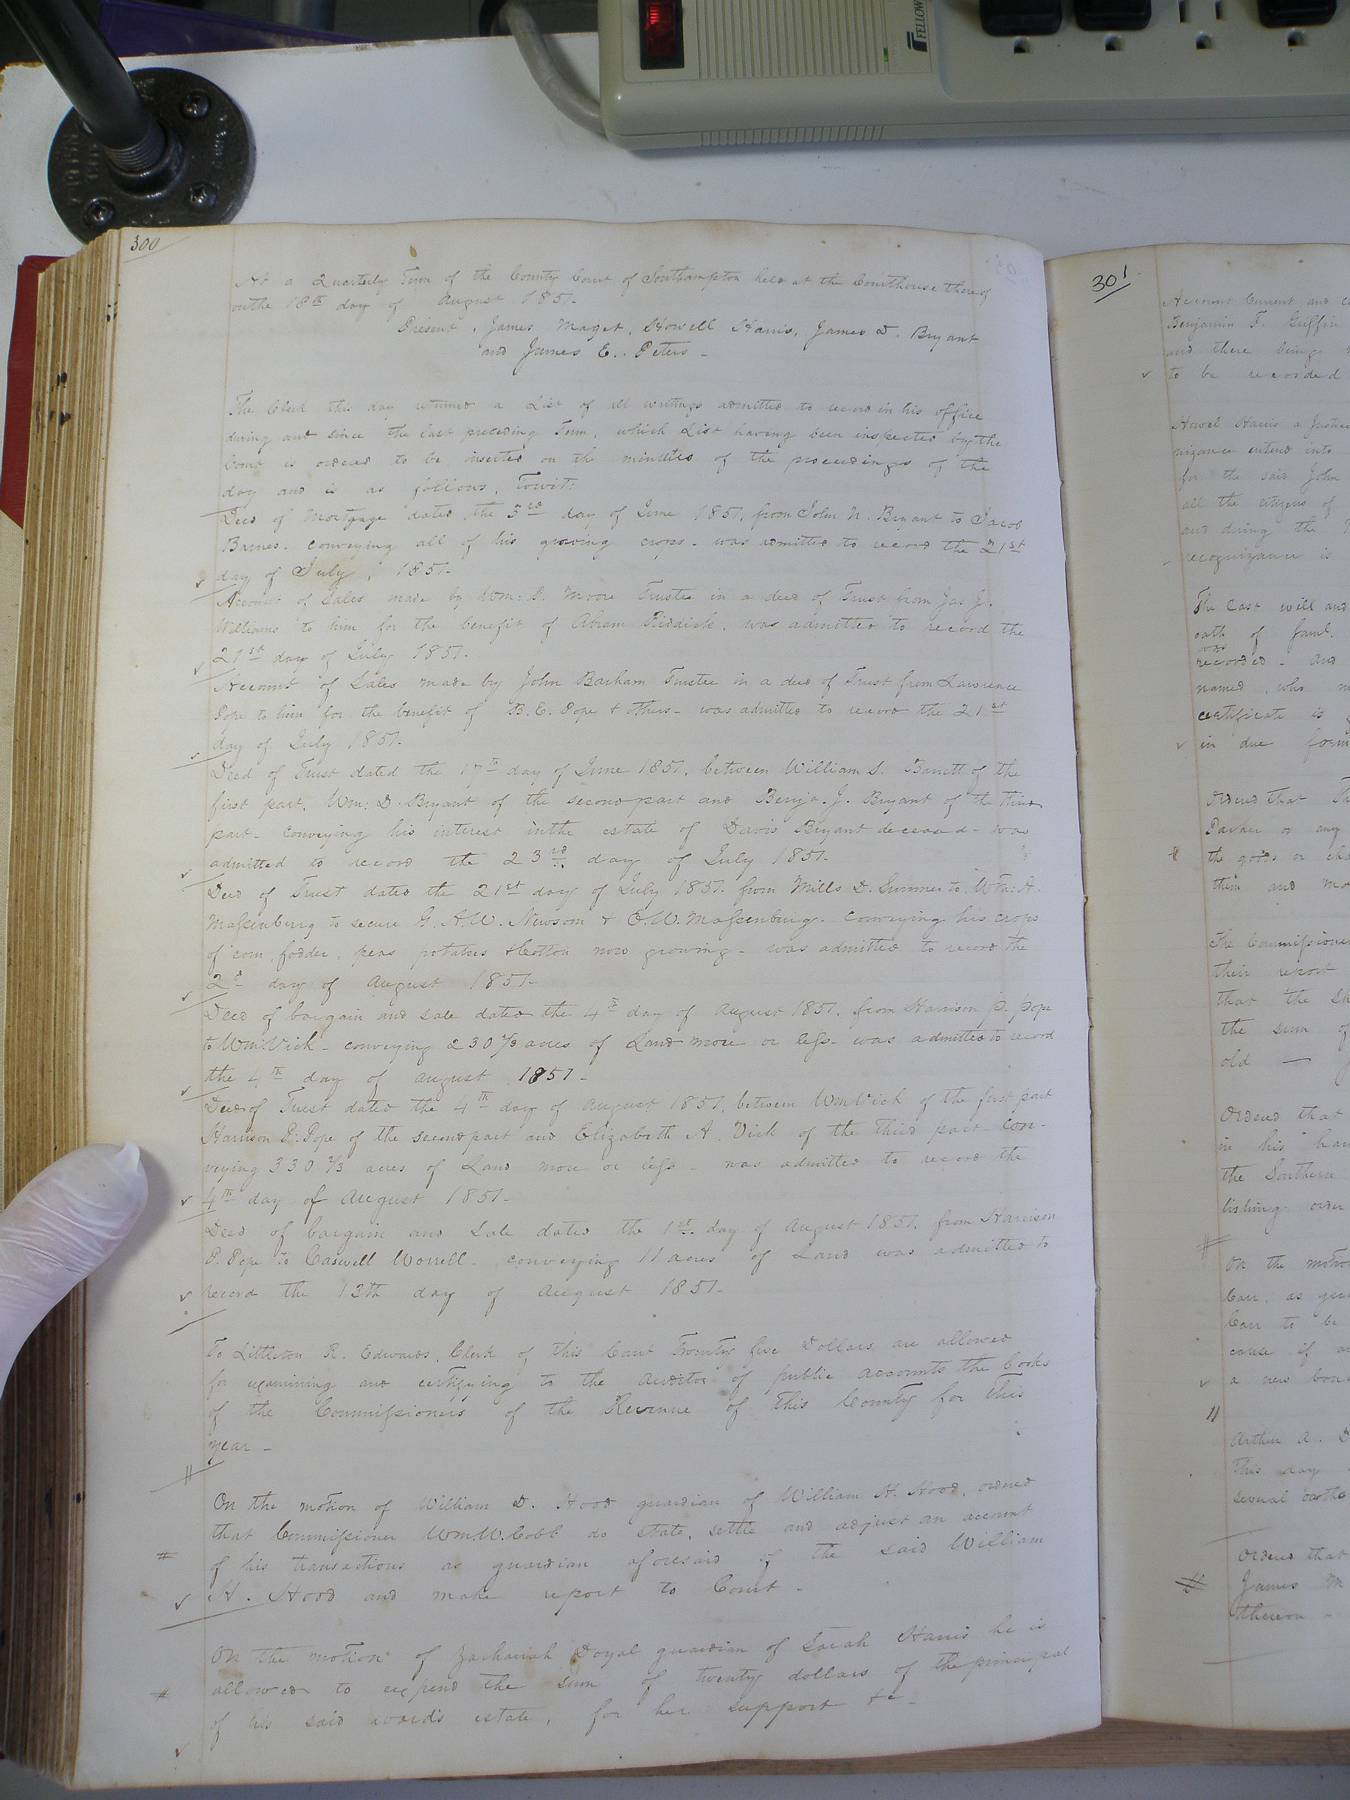 FELLOW
300
At a Quarterly Term of the County Court of Southampton held at the Courthouse thereof
on the 18th day of August 1851.
Present, James Maget, Howell Harris, James D. Bryant
and James E. Peters -
The Clerk this day returned a List of all writings admitted to record in his office
during and since the last preceding Term, which List having been inspected by the
Court is ordered to be inserted on the minutes of the proceedings of the
day and is as follows, Towit:
Deed of Mortgage dated the 3rd day of June 1851, from John N. Bryant to Jacob
Barnes. conveying all of his growing crops - was admitted to record the 21st
day of July, 1851-
Account of Sales made by Wm: P. Moore Trustee in a deed of Trust from Jas J.
Williams to him for the benefit of Abram Riddick, was admitted to record the
21st day of July 1851.
Account of Sales made by John Barham Trustee in a deed of Trust from Lawrence
Pope to him for the benefit of B. E. Pope & others - was admitted to record the 21st
day of July 1851.
Deed of Trust dated the 17th day of June 1851, between William S. Barrett of the
first part, Wm: D. Bryant of the second part and Benja. J. Bryant of the third
part - conveying his interest in the estate of Davis Bryant deceased - was
admitted to record the 23rd day of July 1851.
Deed of Trust dated the 21st day of July 1851 from Mills D. Sumner to Wm. A.
Massenburg to secure G. A. W. Newsom & O. W. Massenburg. Conveying his crops
of corn, fodder, peas potatoes & Cotton now growing - was admitted to record the
2d day of August 1851-
Deed of bargain and sale dated the 4th day of August 1851. from Harrison P. Pope
to Wm. Vick - conveying 230 2/3 acres of Land more or less - was admitted to record
the 4th day of August 1851-
Deed of Trust dated the 4th day of August 1851, between Wm Vick of the first part
Harrison P. Pope of the second part and Elizabeth A. Vick of the third part - con-
veying 330 2/3 acres of Land more or less - was admitted to record the
4th day of August 1851-
Deed of bargain and Sale dated the 1st. day of August 1851. from Harrison
P. Pope to Caswell Worrell. conveying 11 acres of Land was admitted to
record the 13th day of August 1851-
To Littleton R. Edwards, Clerk of this Court Twenty five Dollars are allowed
for examining and certifying to the Auditor of public accounts the books
of the Commissioners of the Revenue of this County for this
year -
On the motion of William D. Hood guardian of William H. Hood, ordered
that Commissioner Wm. W. Cobb do state, settle and adjust an account
of his transactions as guardian aforesaid of the said William
H. Hood and make report to Court -
On the motion of Zachariah Doyal guardian of Sarah Harris he is
allowed to expend the sum of twenty dollars of the principal
of his said ward's estate, for her support &c -
301
Account Current and
Benjamin F. Griffin
and there being
to be recorded
Howel Harris a Justice
nizance entered into
for the said John
all the citizens of
and during the
recognizance is
The last will and
oath of Saml.
was
recorded - and
named, who
certificate is
in due form
Ordered that
Parker or any
the goods or
them and
The Commissioners
their report
that the
the sum of
old -
Ordered that
in his
the Southern
lishing order
On the motion
Carr, as
Carr to be
cause if
a new bond
Arthur A.
This day
several oaths
Ordered that
James M
thereon -